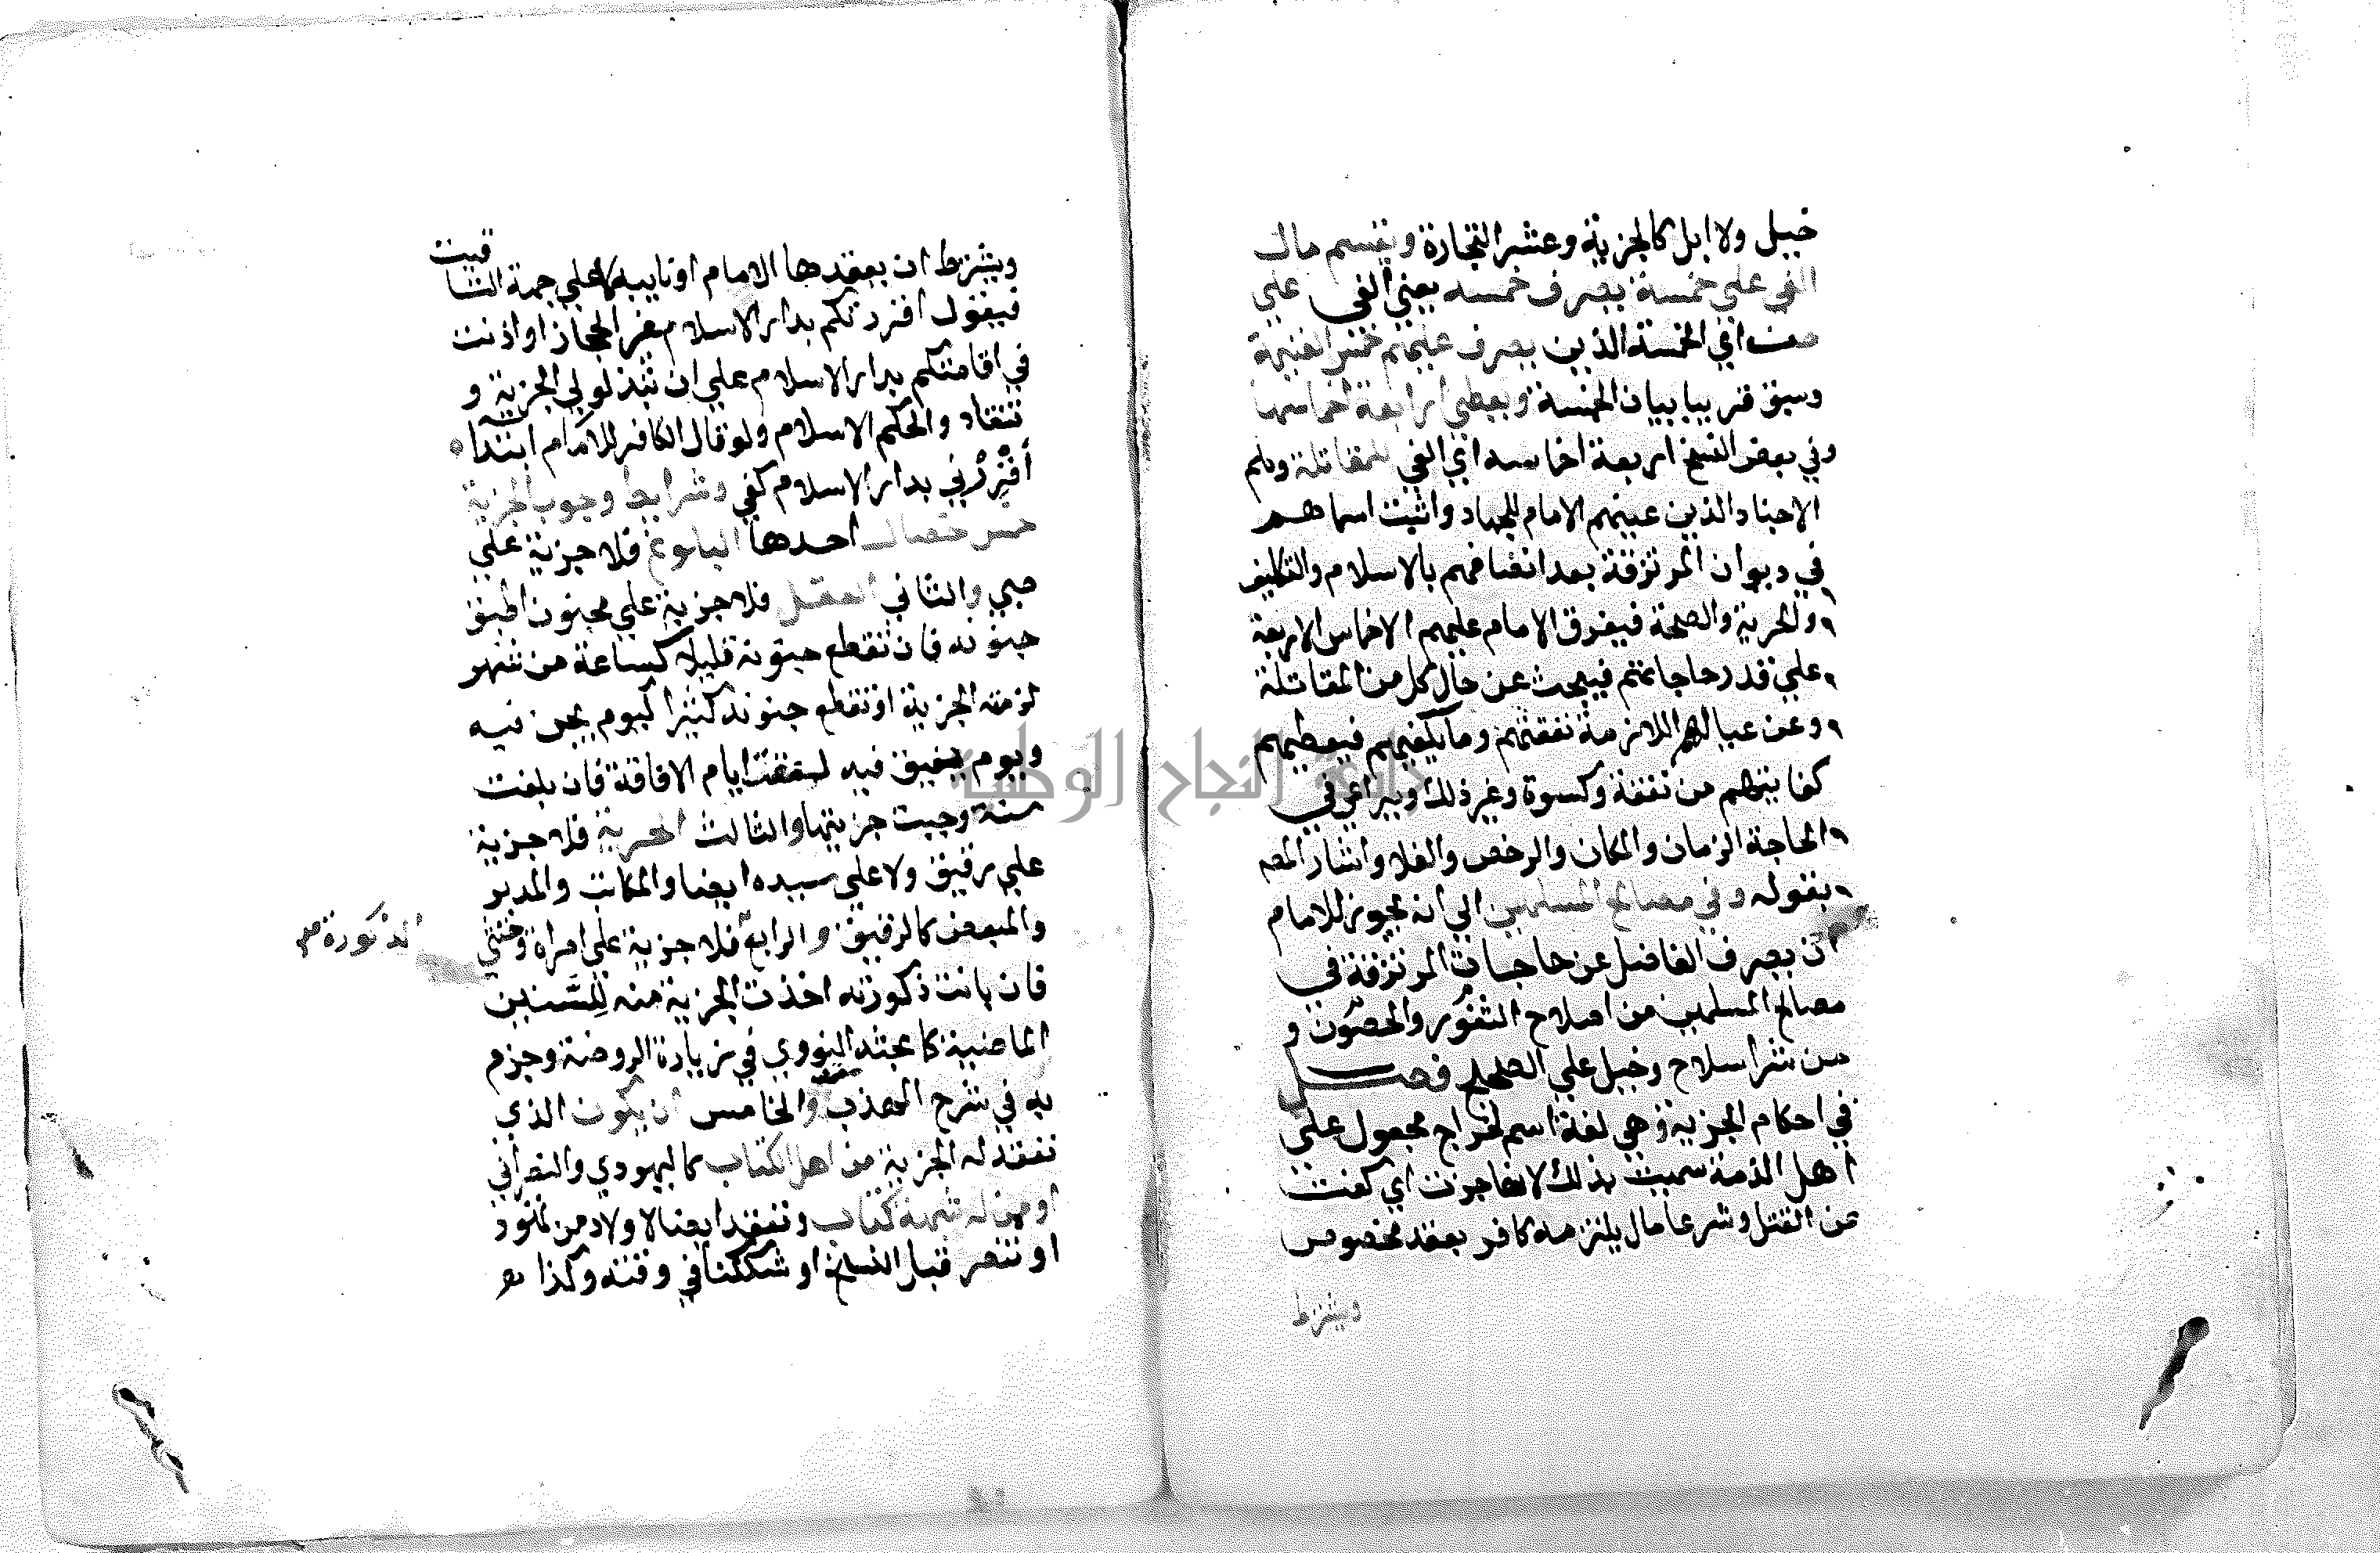 خيل ولا ابل كالجزية وعشر التجارة ويقسم مال
الفي على خمسة يصرف خمسه يعني الفي على
من اي الخمسة الذين يصرف عليهم خمس الغنيمة
وسبق قريبا بيان الخمسة ويعطى اربعة اخماسها
وفي بعض النسخ اربعة اخماسه اي الفي للمقاتلة وهم
الاجناد الذين عينهم الامام للجهاد واثبت اسماهم
في ديوان المرتزقة بعد اتصافهم بالاسلام والتكليف
والحرية والصحة فيفرق الامام عليهم الاخماس الاربعة
على قدر حاجاتهم فيبحث عن حال كل من المقاتلة
وعن عيالهم اللازمة نفقتهم وما يكفيهم فيعطيهم
كفايتهم من نفقة وكسوة وغير ذلك ويراعى في
الحاجة الزمان والمكان والرخص والغلا واشار المص
بقوله وفي مصالح المسلمين الي انه يجوز للامام
ان يصرف الفاضل عن حاجات المرتزقة في
مصالح المسلمين من اصلاح الثغور والحصون و
من شرا سلاح وخيل على الصحيح فصل
في احكام الجزية وهي لغة اسم لخراج مجعول على
اهل الذمة سميت بذلك لانها جزت اي كفت
عن القتل وشرعا مال يلتزمه كافر بعقد مخصوص
ويشترط
ويشترط ان يعقدها الامام او نايبه لا على جهة التاقيت
فيقول اقررتكم بدار الاسلام غير الحجاز او اذنت
في اقامتكم بدار الاسلام على ان تبذلوا لي الجزية و
تنقاد والحكم الاسلام ولو قال الكافر للامام ابتداء
أقررني بدار الاسلام كفي وشرايط وجوب الجزية
خمس خصال احدها البلوغ فلا جزية على
صبي والثاني العقل فلا جزية على مجنون اطبق
جنونه فان تقطع جنونه قليلا كساعة من شهر
لزمته الجزية او تقطع جنونه كثيرا كيوم يجن فيه
ويوم يفيق فيه لفقت ايام الافاقة فان بلغت
سنة وجبت جزيتها والثالث الحرية فلا جزية
على رقيق ولا على سيده ايضا والمكاتب والمدبر
والمبعض كالرقيق والرابع فلا جزية على امراة وخنثى
الذكورة صح
فان بانت ذكورته اخذت الجزية منه للسنين
الماضية كما بحثه النووي في زيادة الروضة وجزم
به في شرح المهذب والخامس ان يكون الذي
تعقد له الجزية من اهل الكتاب كاليهودي والنصراني
او ممن له شبهة كتاب وتعقد ايضا لاولاد من تهود
او تنصر قبل النسخ او شككنا في وقته وكذا